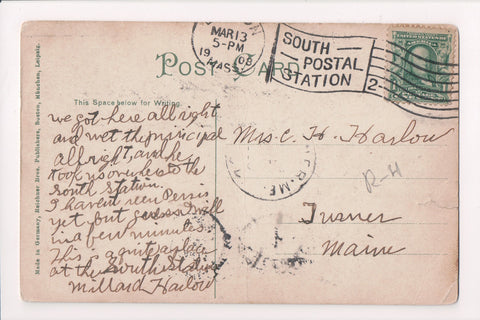 MAR 13
5-PM
1908
MASS
SOUTH
POSTAL
STATION
2-
POST CARD
This Space below for Writing.
we got here all right
and met the principal
all right, and he
took us over to the
South Station.
I haven't seen Persis
yet, but guess I will
in a few minutes.
This is quite a place
at the South Station
Millard Harlow
Mrs. C. H. Harlow
Turner
Maine
R-H
ER. ME.
Made in Germany, Reichner Bros. Publishers, Boston, München, Leipzig.